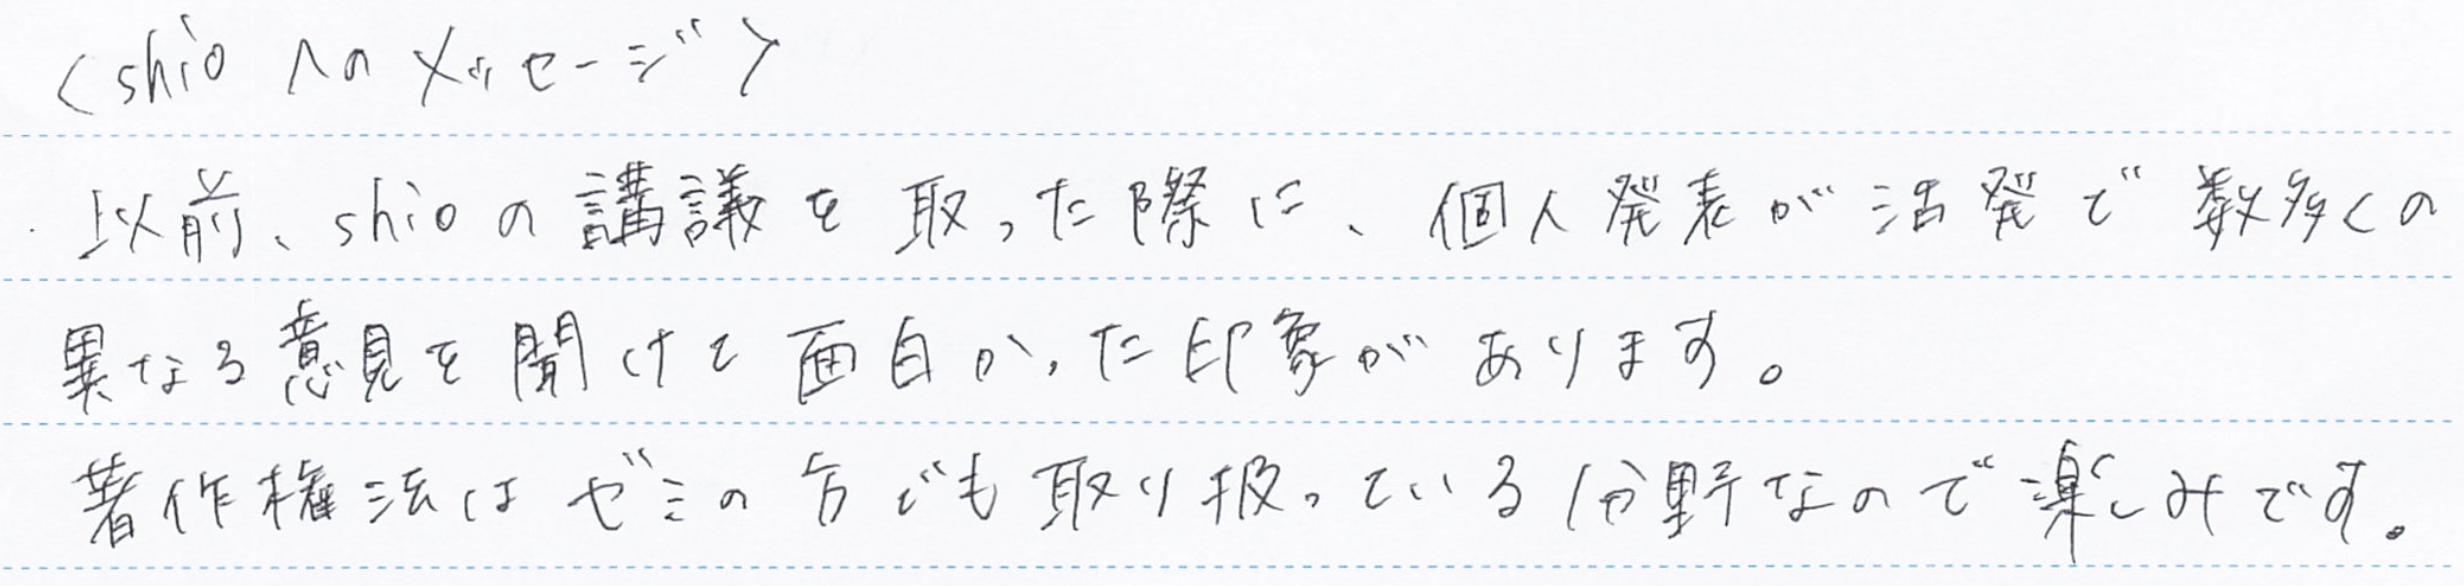 <shioへのメッセージ>
以前、shioの講議を取った際に、個人発表が活発で数多くの
異なる意見を聞けて面白かった印象があります。
著作権法はゼミの方でも取り扱っている分野なので楽しみです。